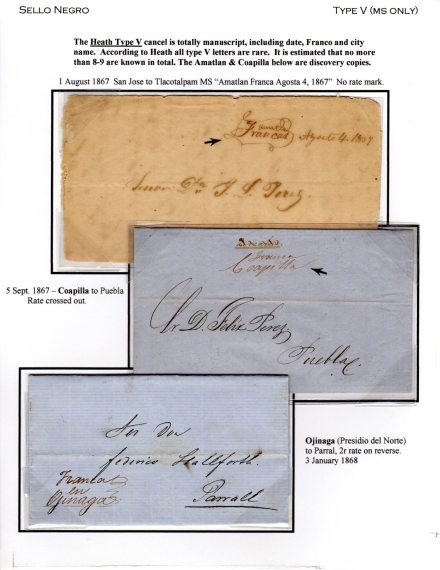 SELLO NEGRO
TYPE V (MS ONLY)
The Heath Type V cancel is totally manuscript, including date, Franco and city
name. According to Heath all type V letters are rare. It is estimated that no more
than 8-9 are known in total. The Amatlan & Coapilla below are discovery copies.
1 August 1867 San Jose to Tlacotalpam MS “Amatlan Franca Agosta 4, 1867” No rate mark.
Amatlan
Francas
Agosto 4. 1867
Señor Dn
Perez
Franca
Coapilla
Sr. D. Felix Perez
Puebla
5 Sept. 1867 – Coapilla to Puebla
Rate crossed out.
Ojinaga (Presidio del Norte)
to Parral, 2r rate on reverse.
3 January 1868
Sor Don
Federico Stallforth
Parrall
Franca
en
Ojinaga